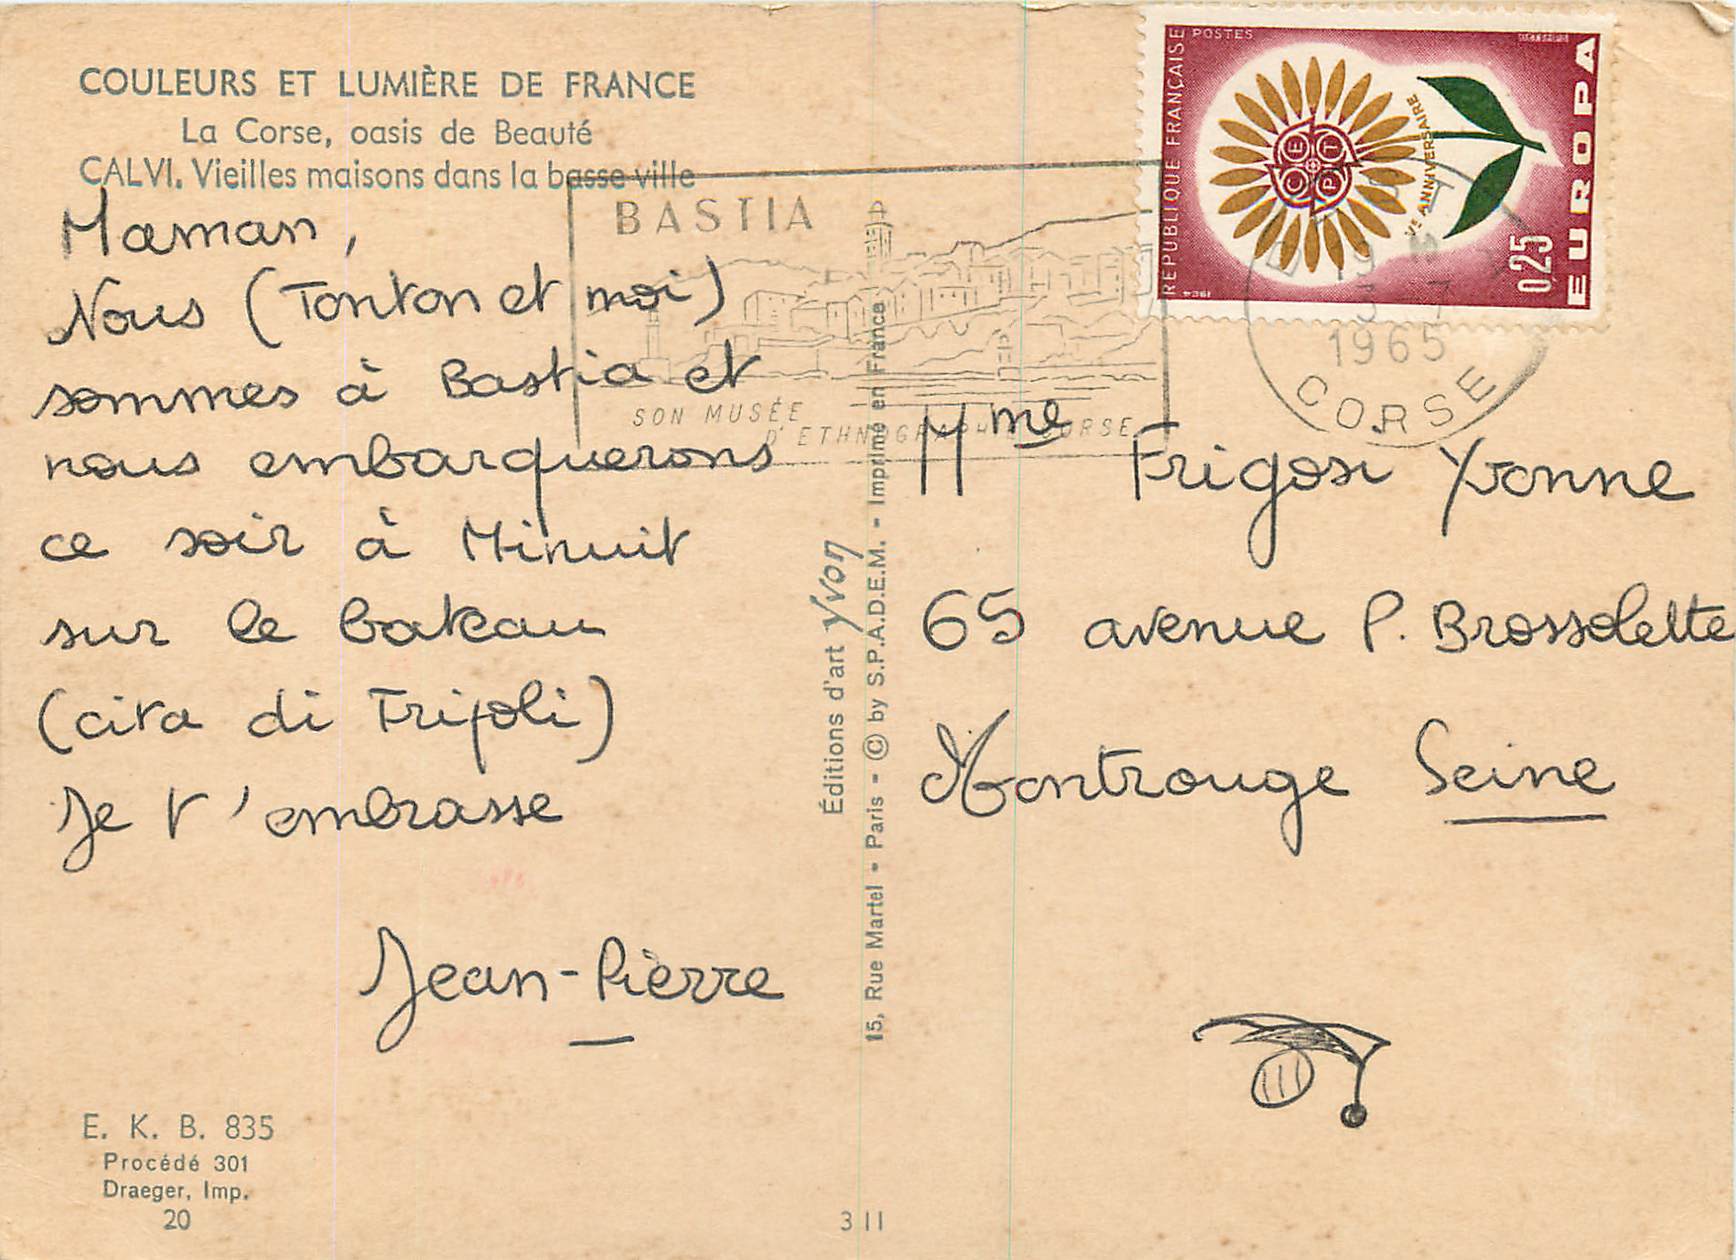 COULEURS ET LUMIÈRE DE FRANCE
La Corse, oasis de Beauté
CALVI. Vieilles maisons dans la basse ville
Maman,
Nous (Tonton et moi)
sommes à Bastia et
nous embarquerons
ce soir à Minuit
sur le bateau
(cita di Tripoli)
Je t'embrasse
Jean-Pierre
E. K. B. 835
Procédé 301
Draeger, Imp.
20
Éditions d'art Yvon
15, Rue Martel - Paris - © by S.P.A.D.E.M. - Imprimé en France
3 11
BASTIA
SON MUSÉE
D'ETHNOGRAPHIE CORSE
RÉPUBLIQUE FRANÇAISE
POSTES
CEPT
Ve ANNIVERSAIRE
0,25
EUROPA
1964
19 H
3 - 7
1965
CORSE
Mme Frigosi Yvonne
65 avenue P. Brossolette
Montrouge Seine